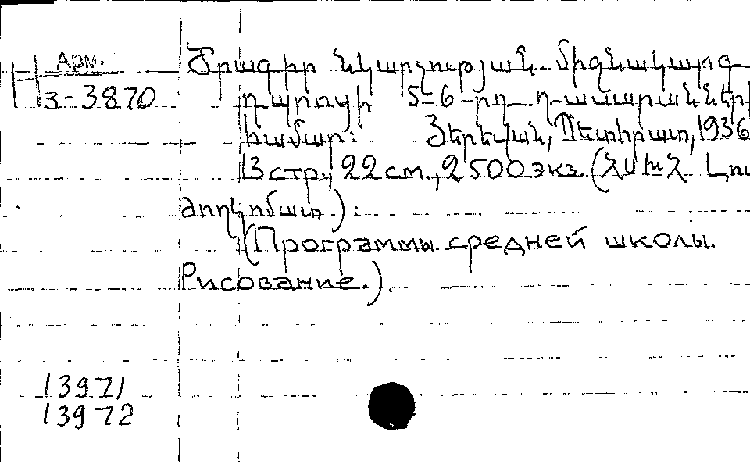 Арм.
З-3870
Ծրագիր նկարչության. միջնակարգ
դպրոցի 5-6-րդ դասարաններ
համար։ Յերեվան, Պետհրատ, 1936
13 стр., 22 см., 2500 экз. (ՀՍԽՀ Լու
ժողկոմատ.)։
(Программы средней школы.
Рисование.)
13971
13972